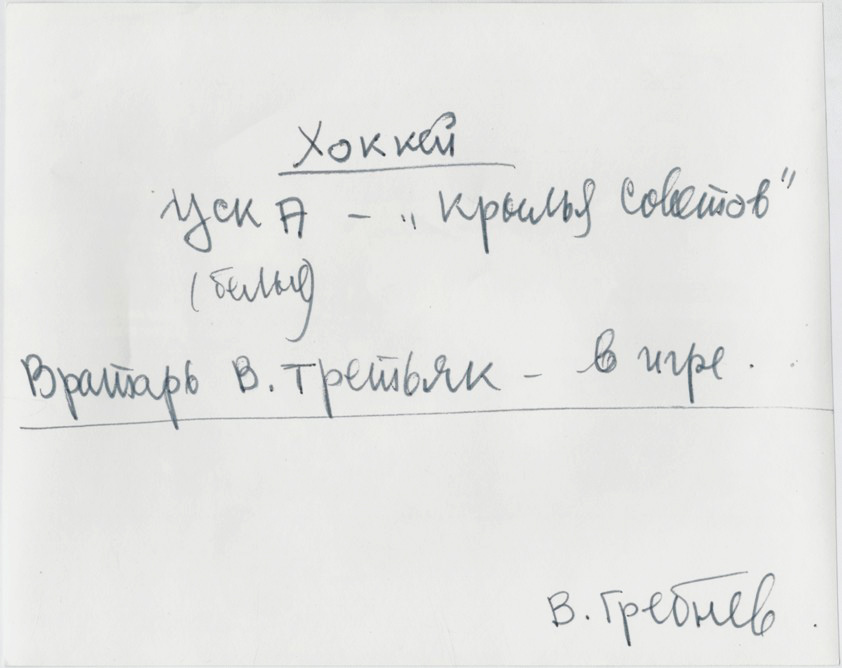 Хоккей
ЦСКА – „Крылья Советов"
(белые)
Вратарь В. Третьяк – в игре.
В. Гребнев.